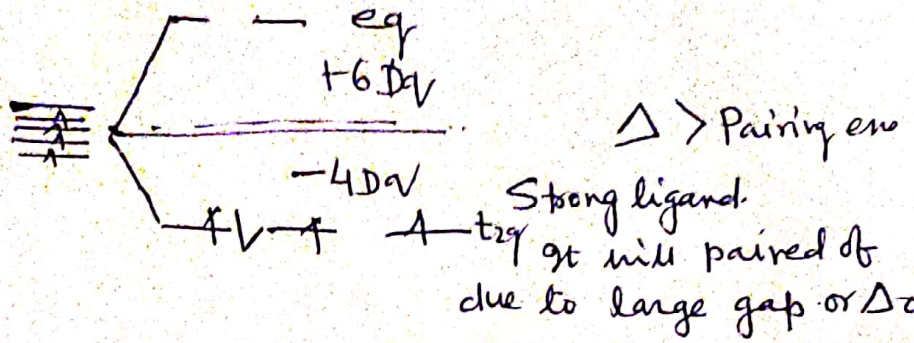 eg
+6 Dq
Δ > Pairing ene
-4Dq
Strong ligand.
t2g
It will paired of
due to large gap or Δo